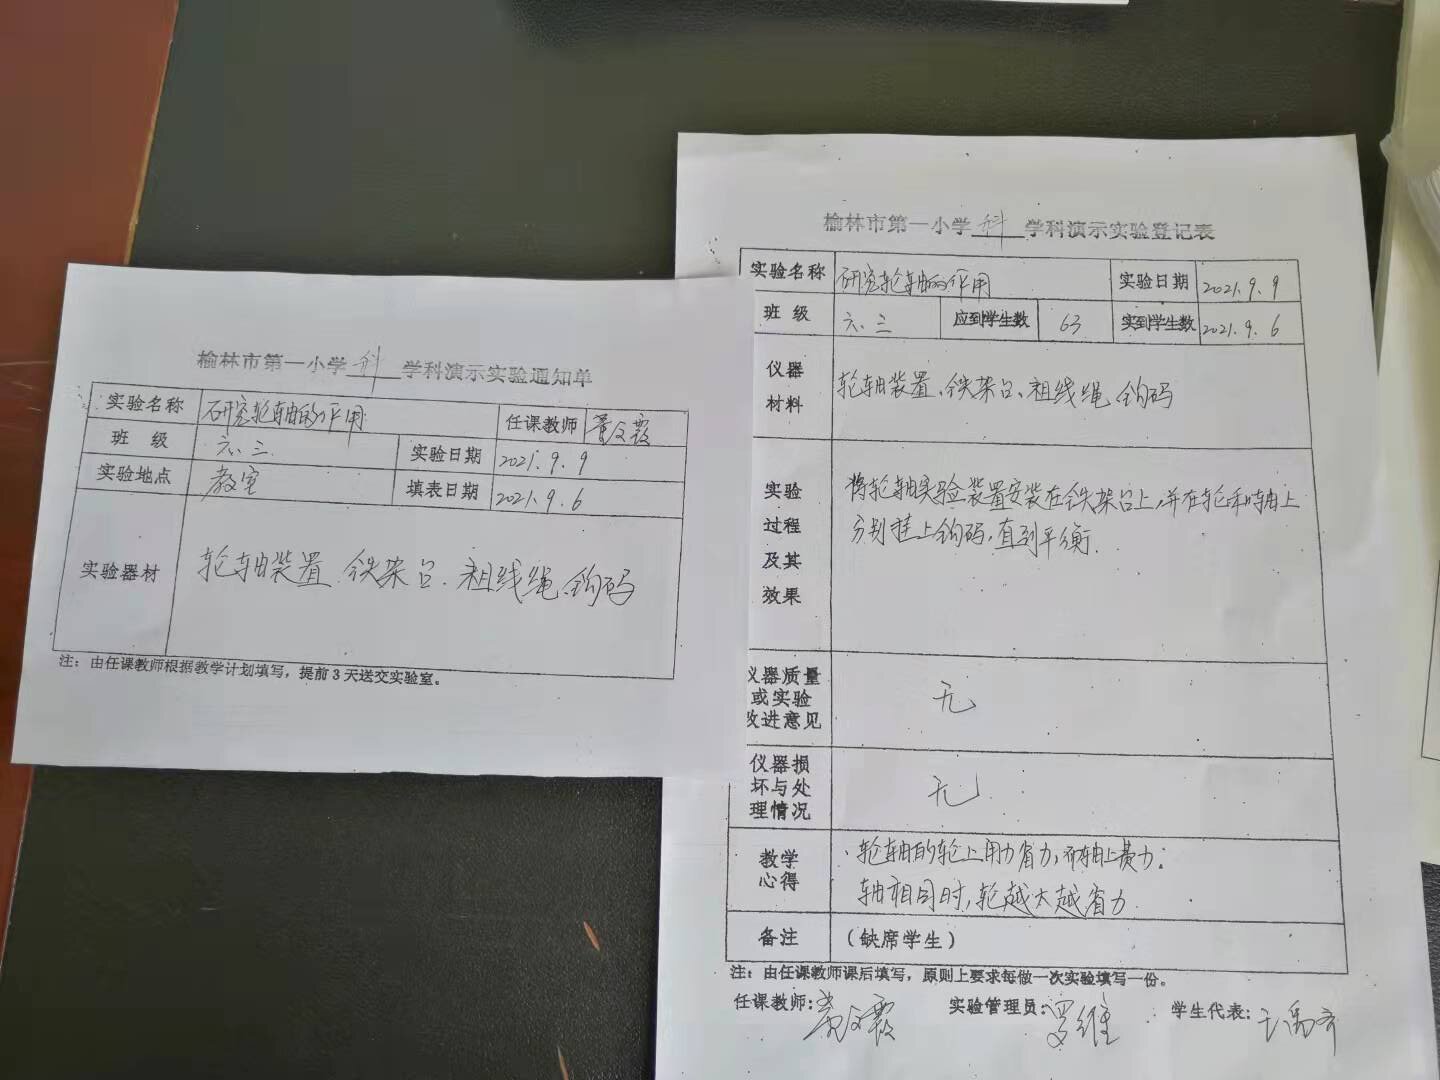 榆林市第一小学 科 学科演示实验通知单
实验名称 研究轮轴的作用 任课教师
班 级 六.三 实验日期 2021.9.9
实验地点 教室 填表日期 2021.9.6
实验器材 轮轴装置、铁架台、粗线绳、钩码
注：由任课教师根据教学计划填写，提前3天送交实验室。
榆林市第一小学 科 学科演示实验登记表
实验名称 研究轮轴的作用 实验日期 2021.9.9
班 级 六.三 应到学生数 63 实到学生数 2021.9.6
仪器
材料
轮轴装置、铁架台、粗线绳、钩码
实验
过程
及其
效果
将轮轴实验装置安装在铁架台上，并在轮和轴上
分别挂上钩码，直到平衡.
仪器质量
或实验
改进意见
无
仪器损
坏与处
理情况
无
教学
心得
轮轴的轮上用力省力，而轴上费力.
轴相同时，轮越大越省力
备注 （缺席学生）
注：由任课教师课后填写，原则上要求每做一次实验填写一份。
任课教师： 实验管理员：罗维 学生代表：